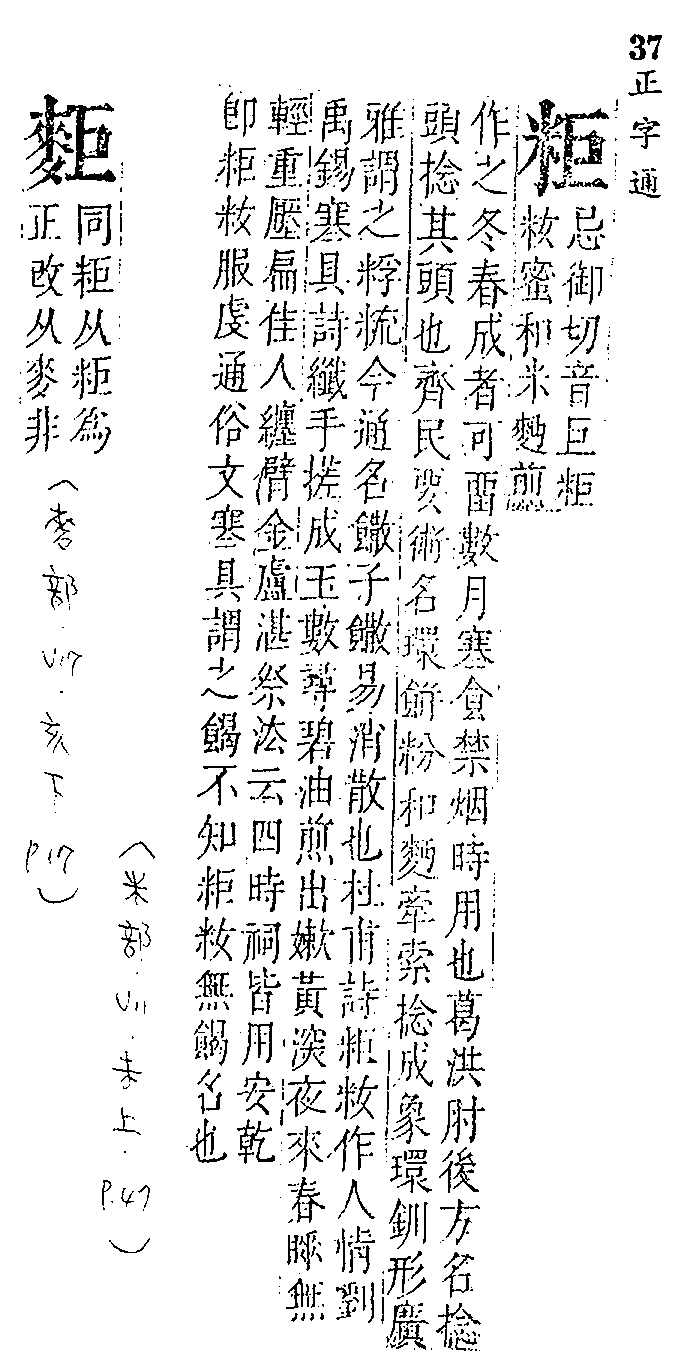 37 正字通
粔
忌御切音巨粔
籹蜜和米麪煎
作之冬春成者可畱數月寒食禁烟時用也葛洪肘後方名捻
頭捻其頭也齊民要術名環餅粉和麪牽索捻成象環釧形廣
雅謂之粰𥹷今通名饊子饊易消散也杜甫詩粔籹作人情劉
禹錫寒具詩纖手搓成玉數尋碧油煎出嫩黃深夜來春睡無
輕重壓扁佳人纏臂金盧諶祭法云四時祠皆用安乾
卽粔籹服虔通俗文寒具謂之餲不知粔籹無餲名也
(米部·V11·未上·P.47)
同粔从粔為
正改从麥非
(麥部·V17·亥下 P.17)